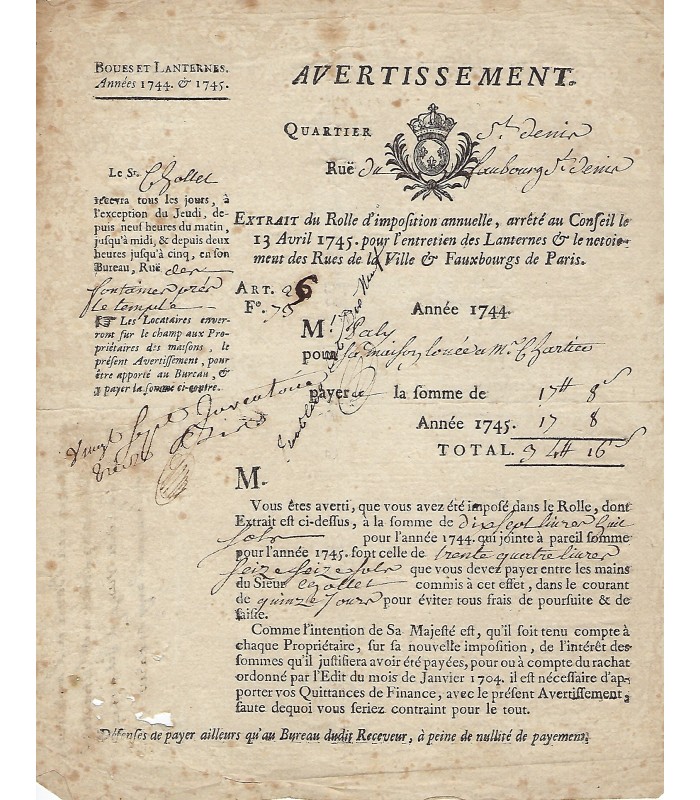 BOUES ET LANTERNES.
Années 1744. & 1745.
AVERTISSEMENT.
QUARTIER St. denis
Ruë du faubourg St. denis
Le Sr. Chollet
recevra tous les jours, à
l'exception du Jeudi, de-
puis neuf heures du matin,
jusqu'à midi, & depuis deux
heures jusqu'à cinq, en son
Bureau, Ruë des
fontaines près
le temple
☞ Les Locataires enver-
ront sur le champ aux Pro-
priétaires des maisons, le
présent Avertissement, pour
être apporté au Bureau, &
y payer la somme ci-contre.
EXTRAIT du Rolle d'imposition annuelle, arrêté au Conseil le
13 Avril 1745. pour l'entretien des Lanternes & le netoie-
ment des Rues de la Ville & Fauxbourgs de Paris.
ART. 26
Fo. 75
Année 1744.
M.
pour sa maison louée a Mr. Chartier
payer la somme de 17tt 8s
Année 1745. 17 8
TOTAL. 34tt 16s
vingt sept Inventoriée
M.
Vous êtes averti, que vous avez été imposé dans le Rolle, dont
Extrait est ci-dessus, à la somme de dix sept livres huit
sols pour l'année 1744. qui jointe à pareil somme
pour l'année 1745. font celle de trente quatre livres
seize seize sols que vous devez payer entre les mains
du Sieur Chollet commis à cet effet, dans le courant
de quinze Jours pour éviter tous frais de poursuite & de
saisie.
Comme l'intention de Sa Majesté est, qu'il soit tenu compte à
chaque Propriétaire, sur sa nouvelle imposition, de l'intérêt des
sommes qu'il justifiera avoir été payées, pour ou à compte du rachat
ordonné par l'Edit du mois de Janvier 1704. il est nécessaire d'ap-
porter vos Quittances de Finance, avec le présent Avertissement,
faute dequoi vous seriez contraint pour le tout.
Défenses de payer ailleurs qu'au Bureau dudit Receveur, à peine de nullité de payement.